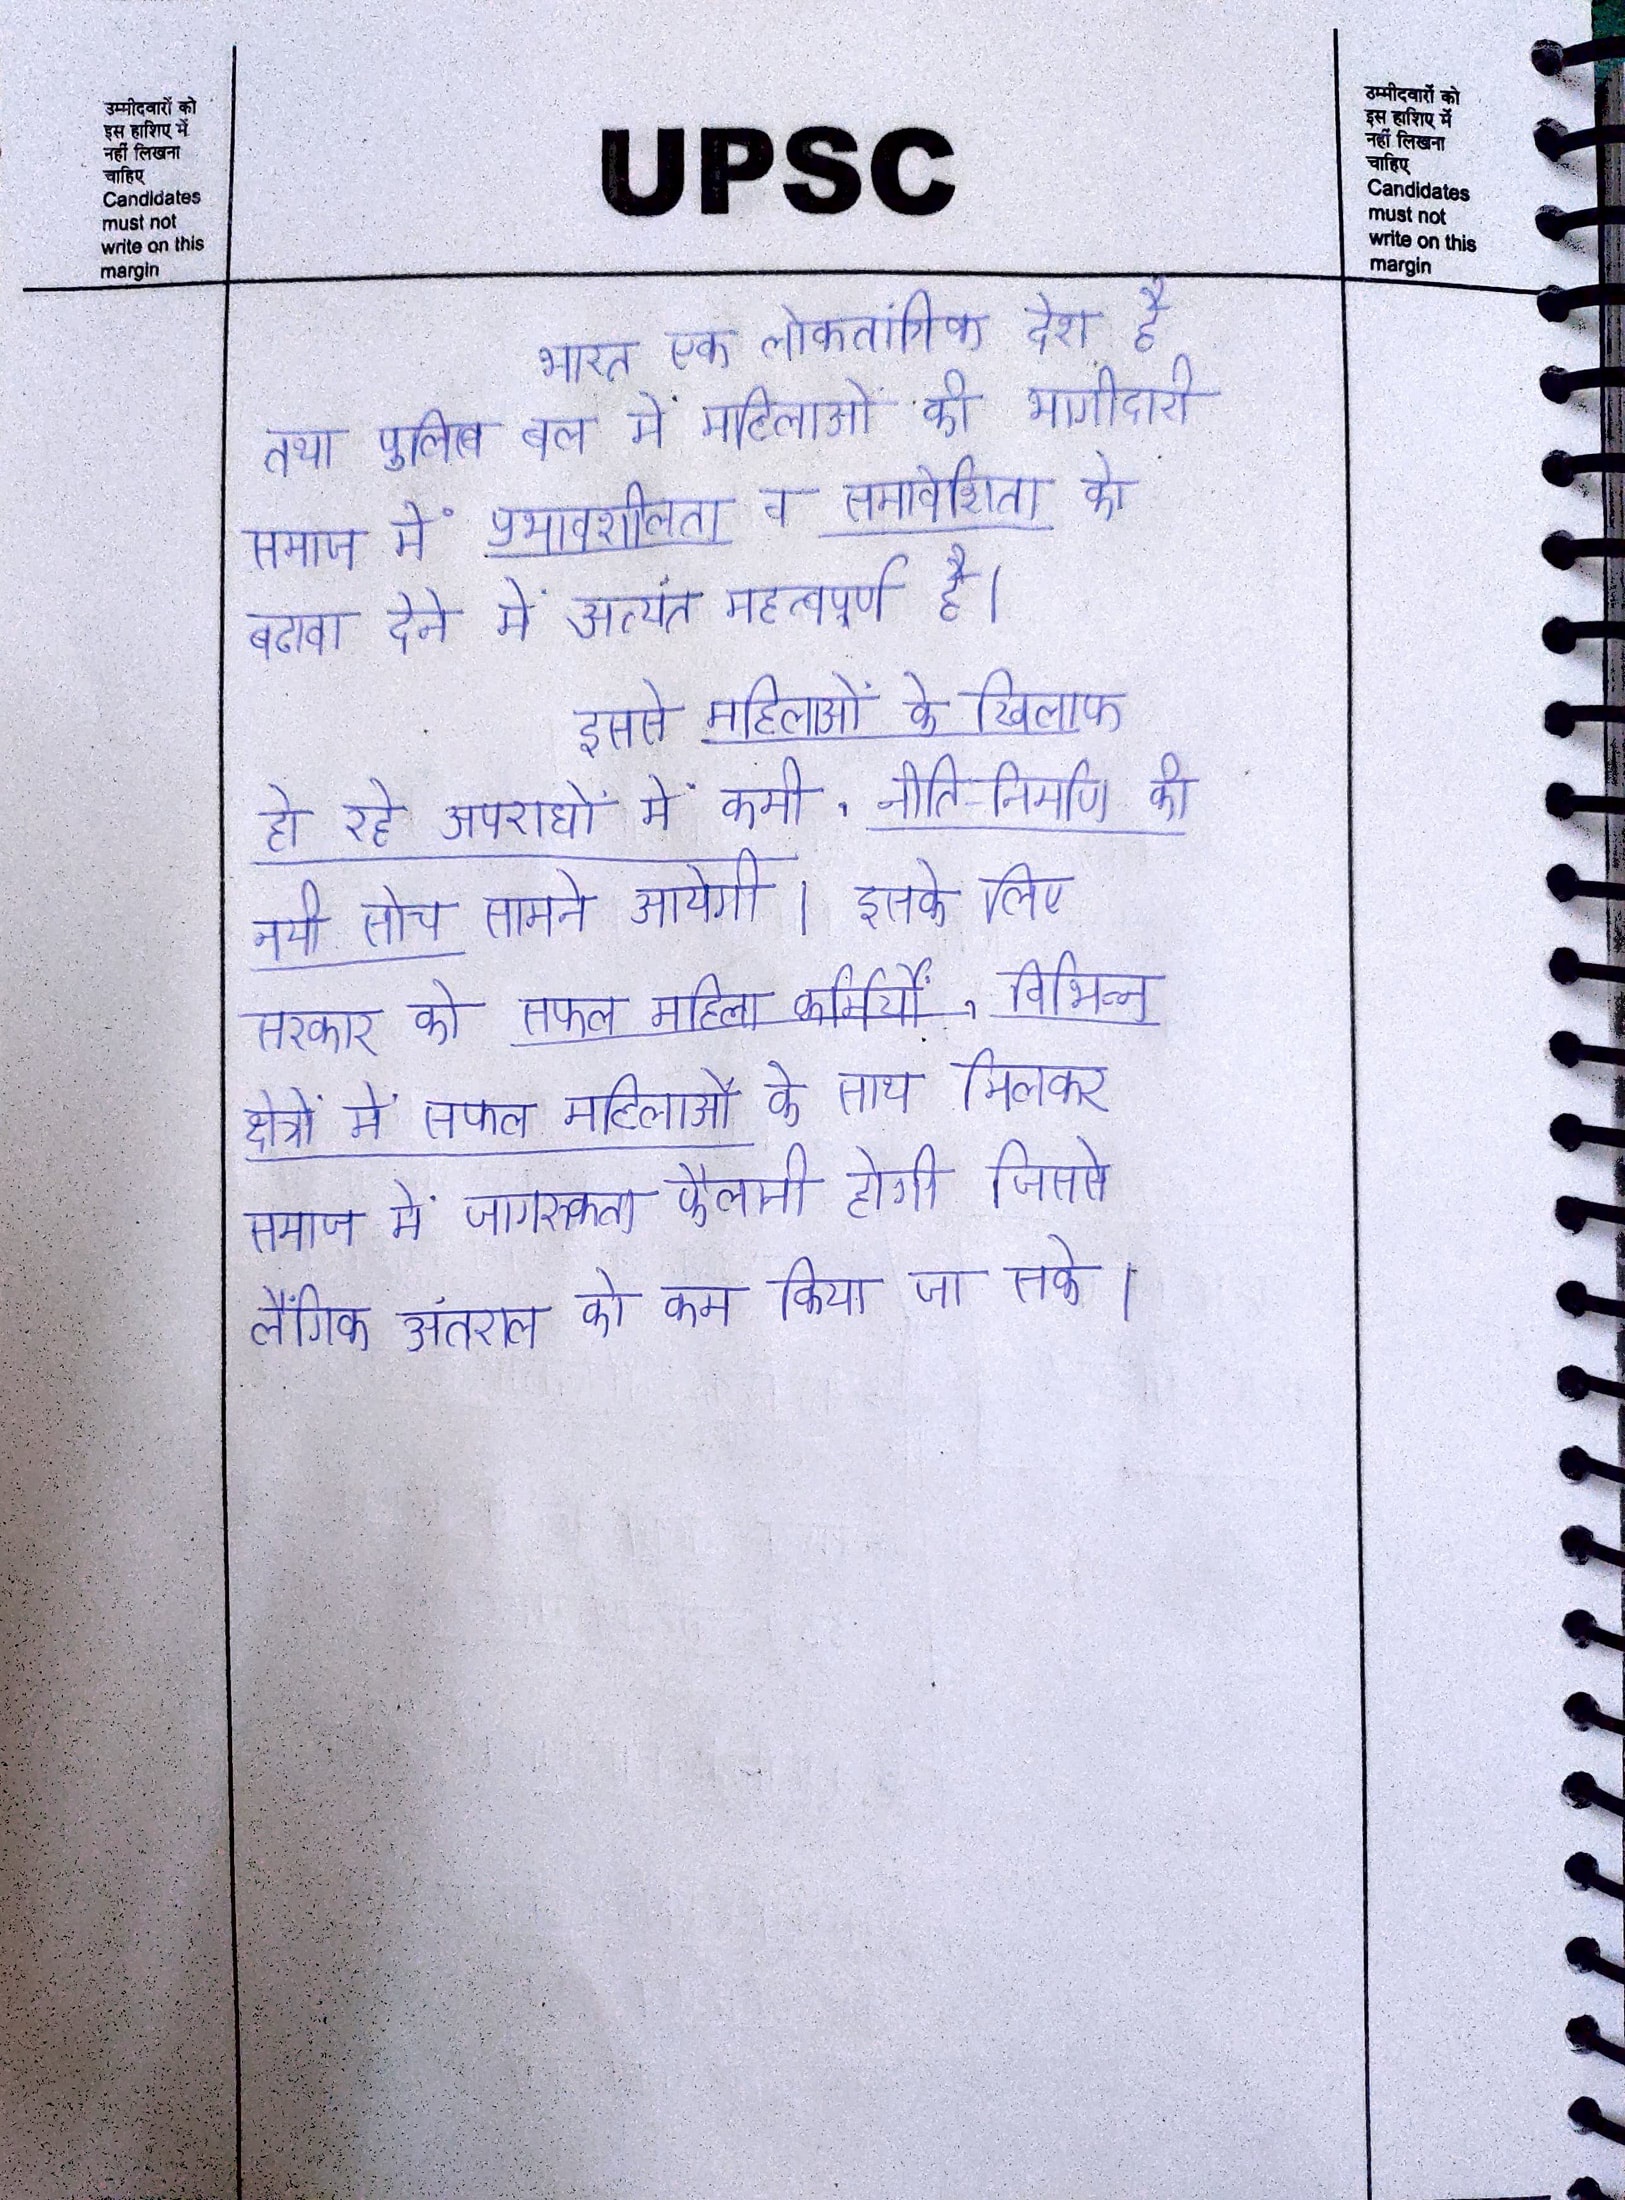 उम्मीदवारों को
इस हाशिए में
नहीं लिखना
चाहिए
Candidates
must not
write on this
margin
UPSC
उम्मीदवारों को
इस हाशिए में
नहीं लिखना
चाहिए
Candidates
must not
write on this
margin
भारत एक लोकतांत्रिक देश है
तथा पुलिस बल में महिलाओं की भागीदारी
समाज में प्रभावशीलता व समावेशिता को
बढावा देने में अत्यंत महत्वपूर्ण है।
इससे महिलाओं के खिलाफ
हो रहे अपराधों में कमी, नीति-निर्माण की
नयी सोच सामने आयेगी। इसके लिए
सरकार को सफल महिला कर्मियों, विभिन्न
क्षेत्रों में सफल महिलाओं के साथ मिलकर
समाज में जागरुकता फैलानी होगी जिससे
लैंगिक अंतराल को कम किया जा सके।